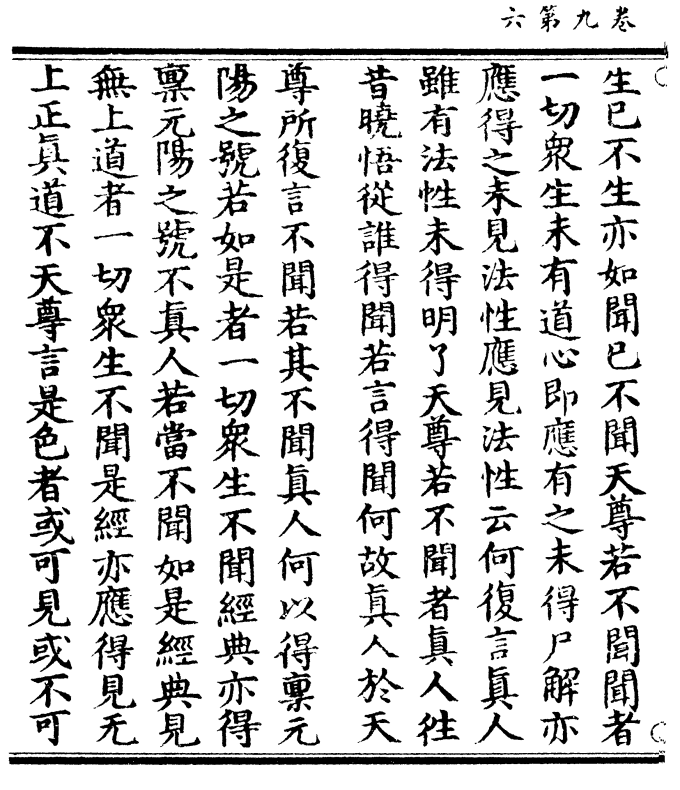 卷九第六
生已不生亦如聞已不聞天尊若不聞聞者
一切衆生未有道心即應有之未得尸解亦
應得之未見法性應見法性云何復言眞人
雖有法性未得明了天尊若不聞者眞人徃
昔曉悟從誰得聞若言得聞何故眞人於天
尊所復言不聞若其不聞眞人何以得稟元
陽之號若如是者一切衆生不聞經典亦得
稟元陽之號不眞人若當不聞如是經典見
無上道者一切衆生不聞是經亦應得見无
上正眞道不天尊言是色者或可見或不可